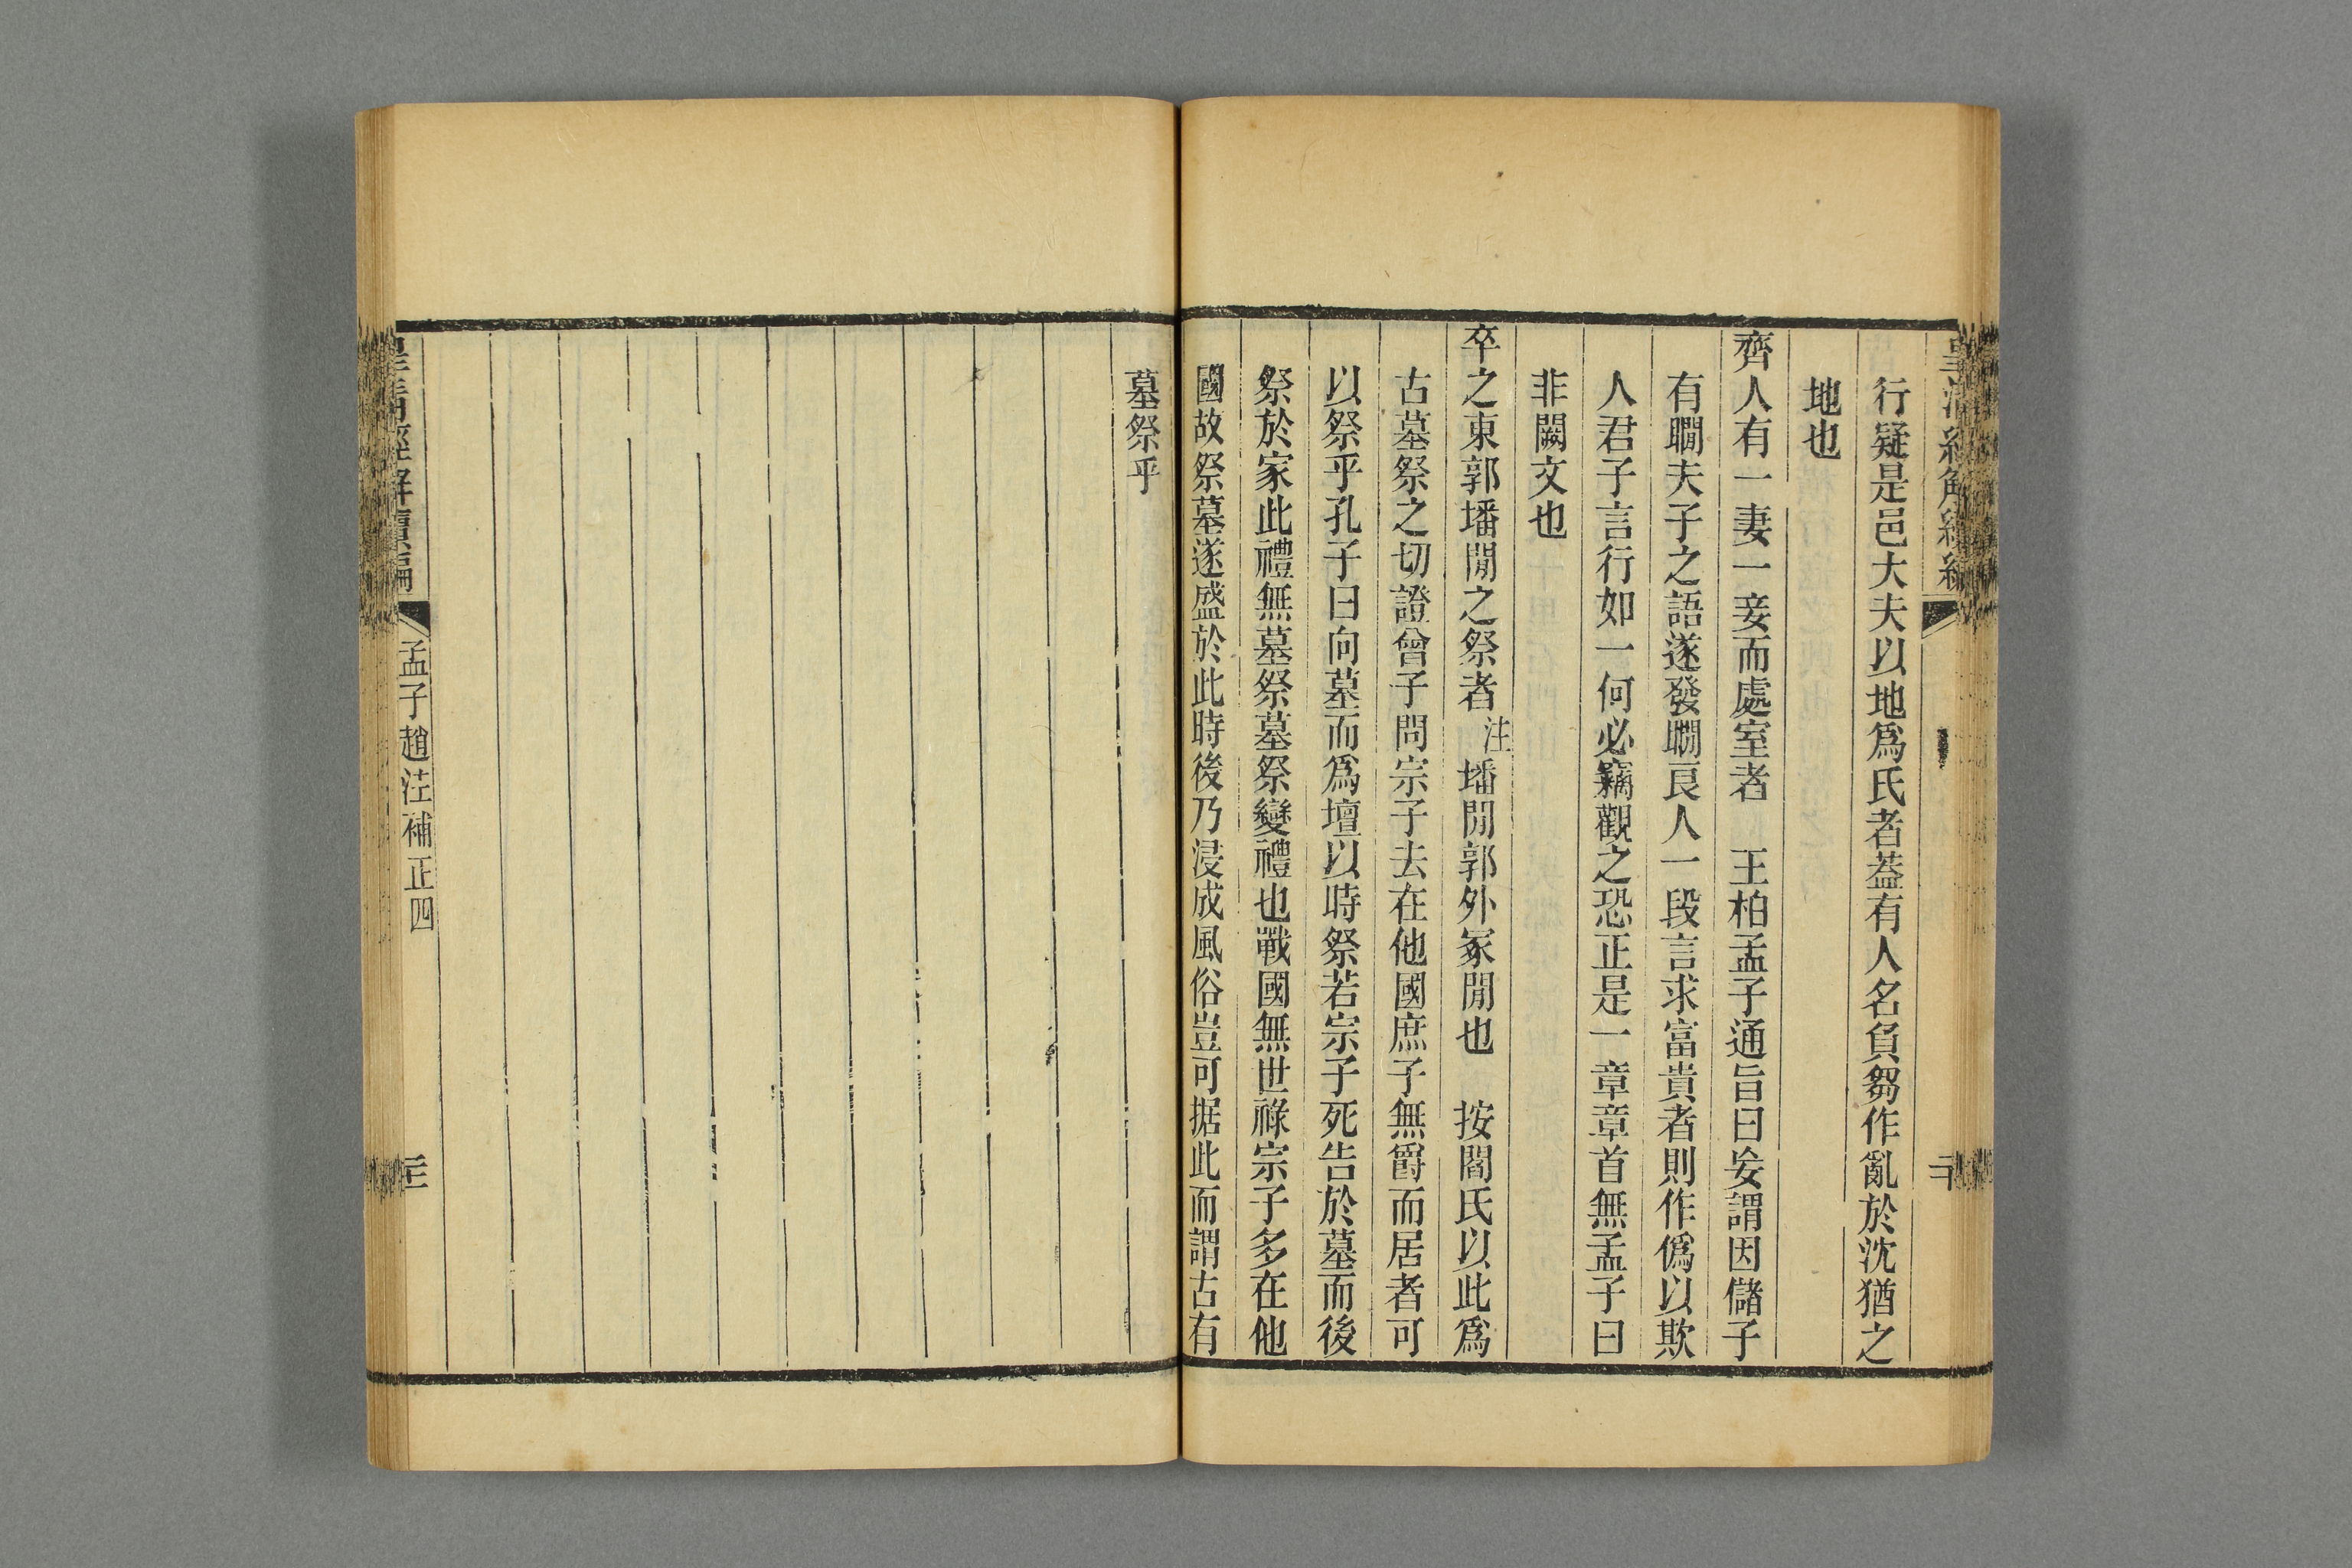 行疑是邑大夫以地爲氏者葢有人名負芻作亂於沈猶之
地也
齊人有一妻一妾而處室者　王柏孟子通旨曰妄謂因儲子
有瞷夫子之語遂發瞷良人一段言求富貴者則作僞以欺
人君子言行如一何必竊觀之恐正是一章章首無孟子曰
非闕文也
卒之東郭墦閒之祭者注墦閒郭外冢閒也　按閻氏以此爲
古墓祭之切證曾子問宗子去在他國庶子無爵而居者可
以祭乎孔子曰向墓而爲壇以時祭若宗子死告於墓而後
祭於家此禮無墓祭墓祭變禮也戰國無世祿宗子多在他
國故祭墓遂盛於此時後乃浸成風俗豈可据此而謂古有
墓祭乎
皇清經解續編
孟子趙注補正四